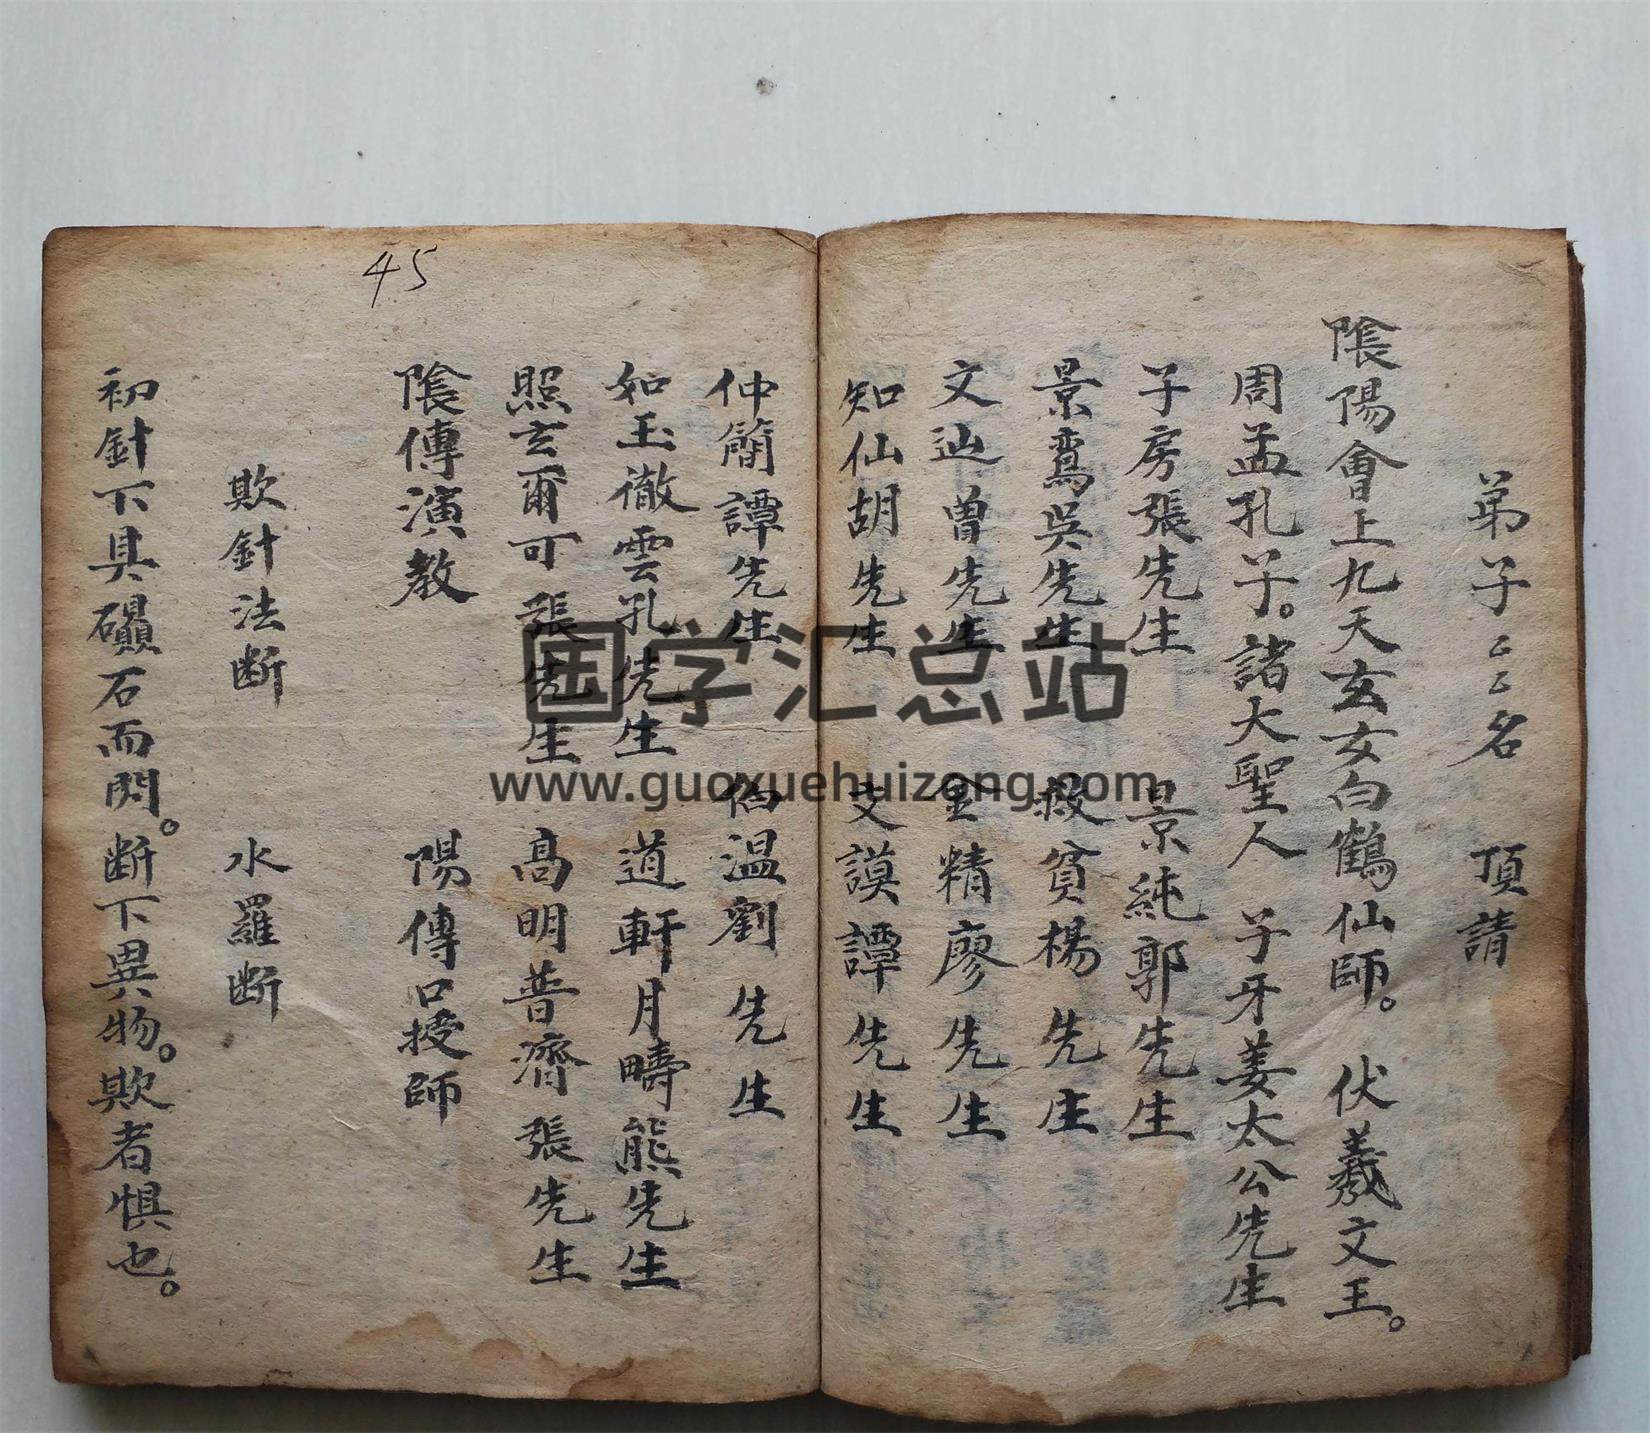 弟子〻〻名 頂請
隂陽會上九天玄女白鶴仙師。 伏羲文王。
周孟孔子。諸大聖人 子牙姜太公先生
子房張先生 景純郭先生
景鸞吳先生 救貧楊先生
文辿曾先生 里精廖先生
知仙胡先生 文謨譚先生
45
仲簡譚先生 伯温劉先生
如玉徹雲孔先生 道軒月疇熊先生
照玄爾可張先生 高明普濟張先生
隂傳演教 陽傳口授師
欺針法断 水羅断
初針下具礥石而閃。断下異物。欺者惧也。
国学汇总站
www.guoxuehuizong.com